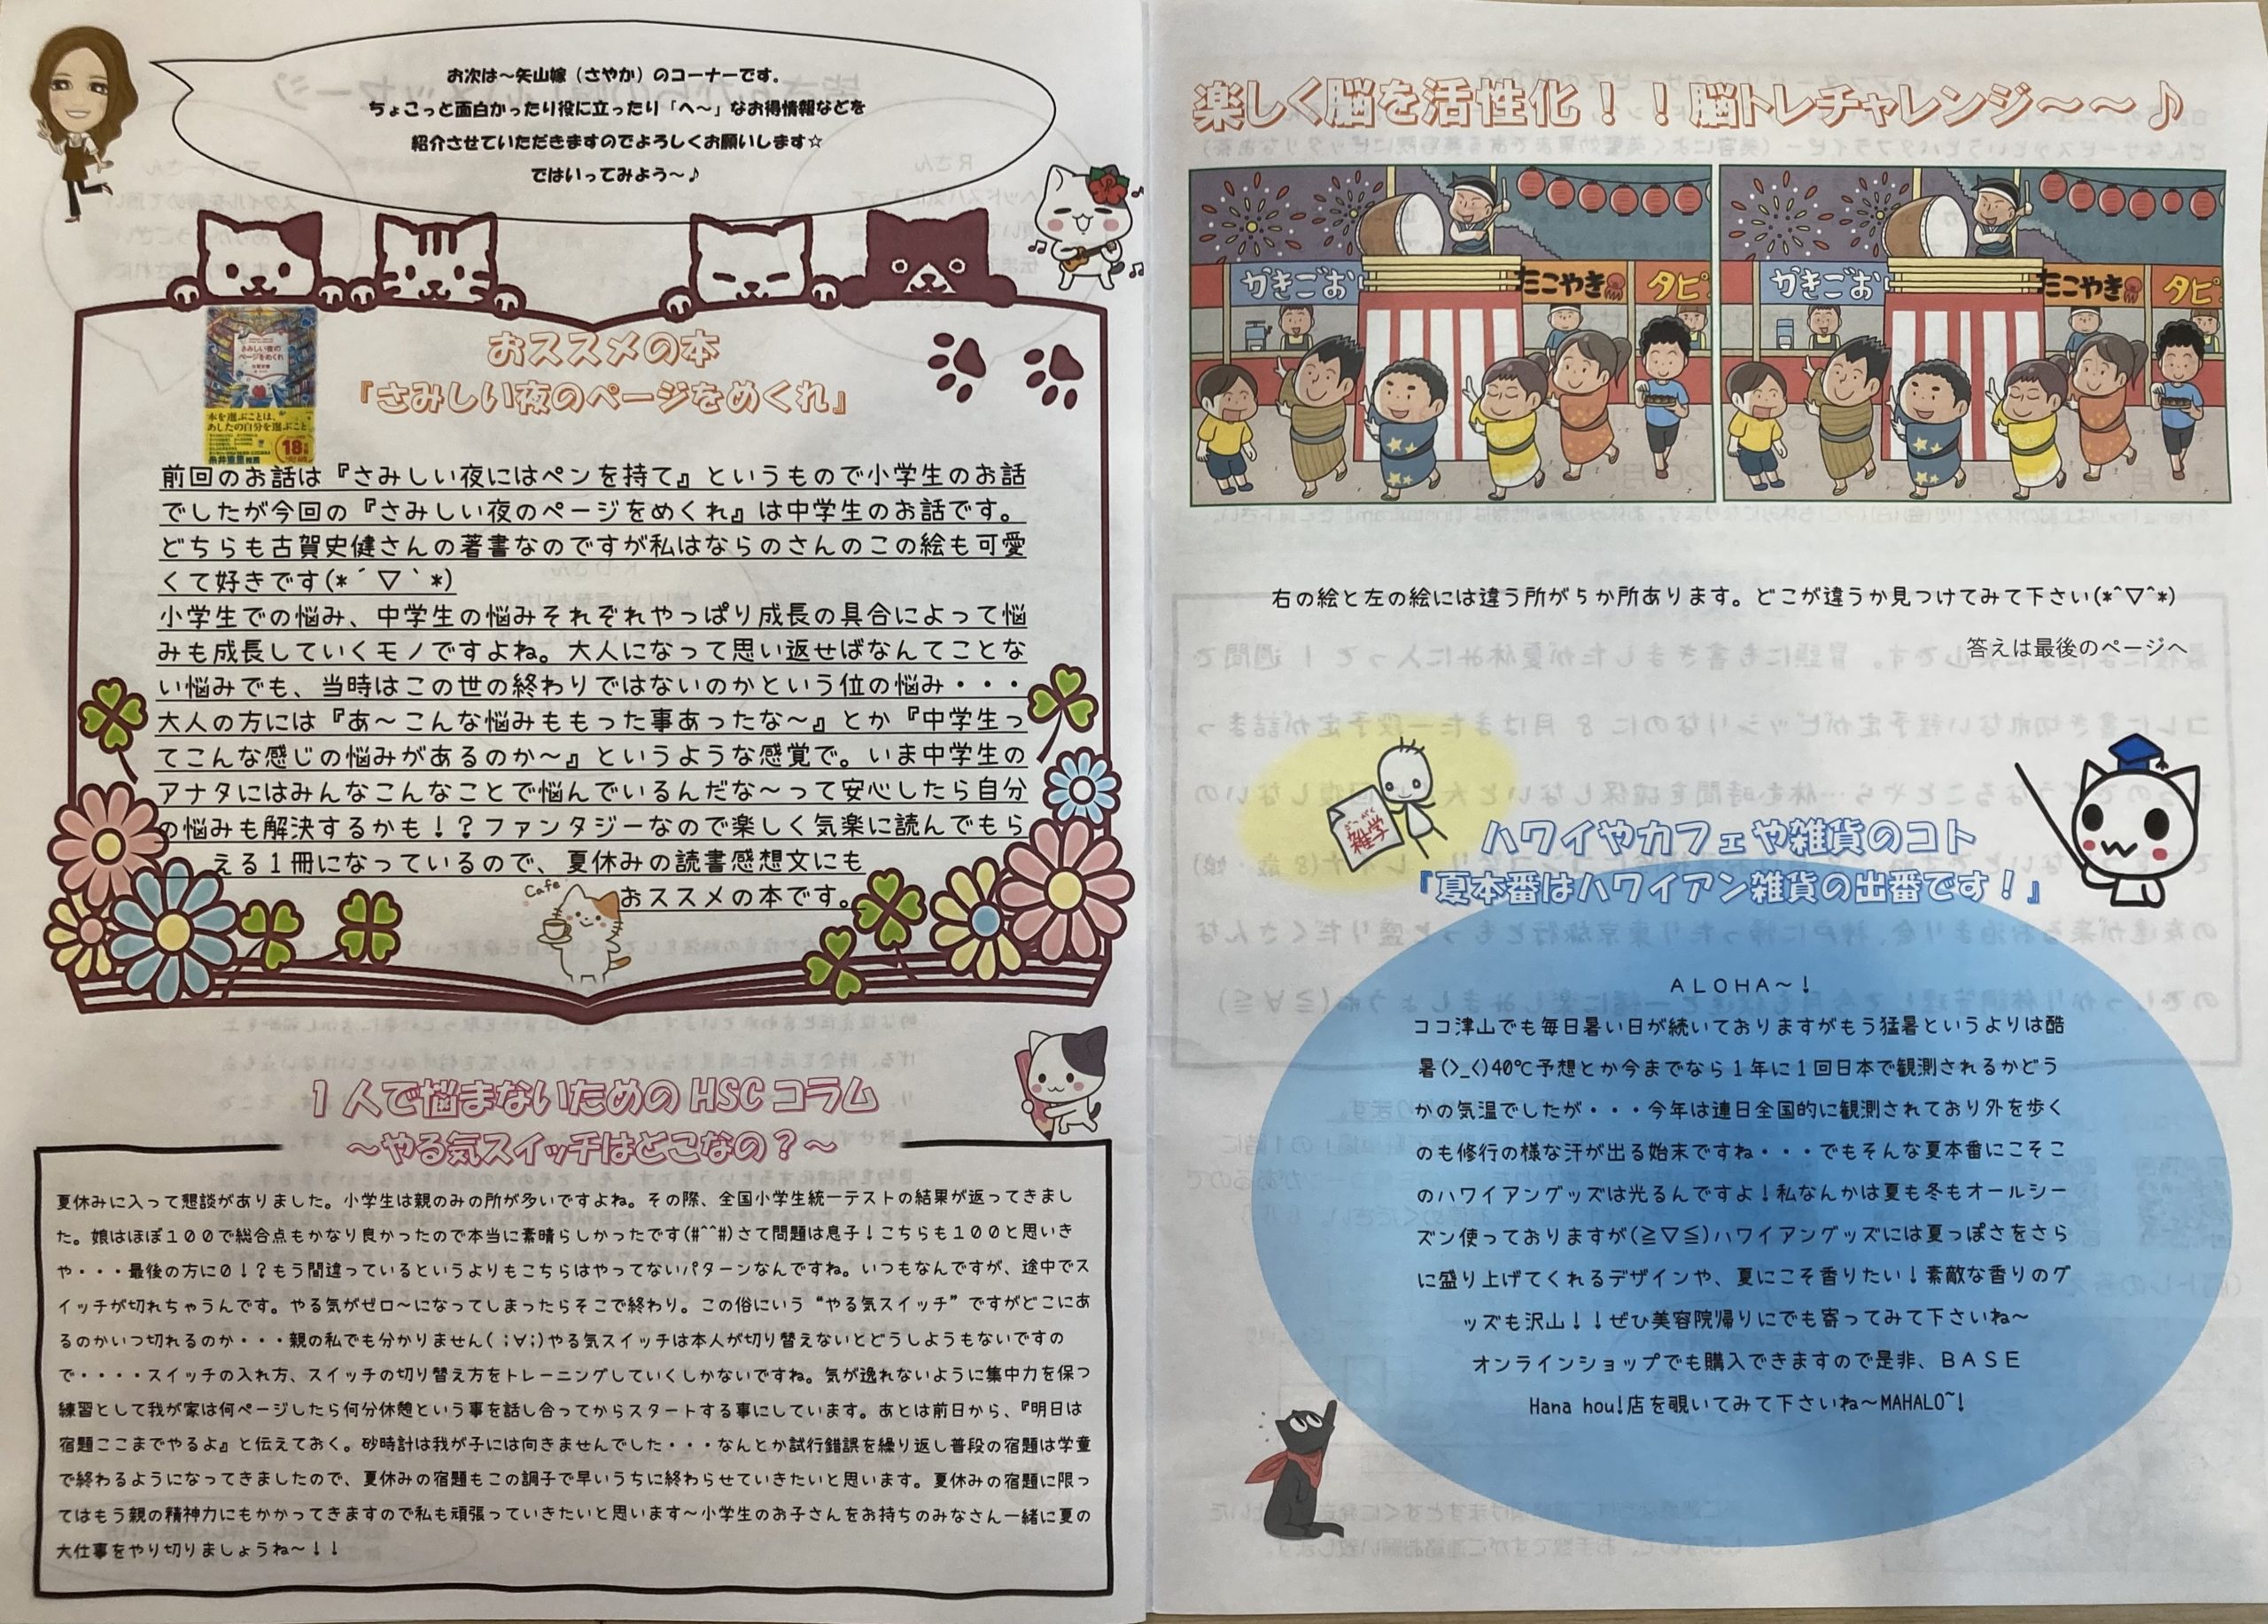 お次は～矢山嫁（さやか）のコーナーです。
ちょこっと面白かったり役に立ったり「へ～」なお得情報などを
紹介させていただきますのでよろしくお願いします☆
ではいってみよう～♪
おススメの本
『さみしい夜のページをめくれ』
さみしい夜の
ページをめくれ
本を選ぶことは、
あしたの自分を選ぶこと
18
糸井重里
前回のお話は『さみしい夜にはペンを持て』というもので小学生のお話
でしたが今回の『さみしい夜のページをめくれ』は中学生のお話です。
どちらも古賀史健さんの著書なのですが私はならのさんのこの絵も可愛
くて好きです(*´▽｀*)
小学生での悩み、中学生の悩みそれぞれやっぱり成長の具合によって悩
みも成長していくモノですよね。大人になって思い返せばなんてことな
い悩みでも、当時はこの世の終わりではないのかという位の悩み・・・
大人の方には『あ～こんな悩みももった事あったな～』とか『中学生っ
てこんな感じの悩みがあるのか～』というような感覚で。いま中学生の
アナタにはみんなこんなことで悩んでいるんだな～って安心したら自分
の悩みも解決するかも！？ファンタジーなので楽しく気楽に読んでもら
える１冊になっているので、夏休みの読書感想文にも
おススメの本です。
Cafe
１人で悩まないための HSC コラム
～やる気スイッチはどこなの？～
夏休みに入って懇談がありました。小学生は親のみの所が多いですよね。その際、全国小学生統一テストの結果が返ってきまし
た。娘はほぼ１００で総合点もかなり良かったので本当に素晴らしかったです(#^^#)さて問題は息子！こちらも１００と思いき
や・・・最後の方に０！？もう間違っているというよりもこちらはやってないパターンなんですね。いつもなんですが、途中でス
イッチが切れちゃうんです。やる気がゼロ～になってしまったらそこで終わり。この俗にいう“やる気スイッチ”ですがどこにあ
るのかいつ切れるのか・・・親の私でも分かりません(；∀；)やる気スイッチは本人が切り替えないとどうしようもないですの
で・・・・スイッチの入れ方、スイッチの切り替え方をトレーニングしていくしかないですね。気が逸れないように集中力を保つ
練習として我が家は何ページしたら何分休憩という事を話し合ってからスタートする事にしています。あとは前日から、『明日は
宿題ここまでやるよ』と伝えておく。砂時計は我が子には向きませんでした・・・なんとか試行錯誤を繰り返し普段の宿題は学童
で終わるようになってきましたので、夏休みの宿題もこの調子で早いうちに終わらせていきたいと思います。夏休みの宿題に限っ
てはもう親の精神力にもかかってきますので私も頑張っていきたいと思います～小学生のお子さんをお持ちのみなさん一緒に夏の
大仕事をやり切りましょうね～！！
楽しく脳を活性化！！脳トレチャレンジ～～♪
かきごお たこやき タピ
かきごお たこやき タピ
右の絵と左の絵には違う所が５か所あります。どこが違うか見つけてみて下さい(*^▽^*)
答えは最後のページへ
雑学
ハワイやカフェや雑貨のコト
『夏本番はハワイアン雑貨の出番です！』
ＡＬＯＨＡ～！
ココ津山でも毎日暑い日が続いておりますがもう猛暑というよりは酷
暑(>_<)40℃予想とか今までなら１年に１回日本で観測されるかどう
かの気温でしたが・・・今年は連日全国的に観測されており外を歩く
のも修行の様な汗が出る始末ですね・・・でもそんな夏本番にこそこ
のハワイアングッズは光るんですよ！私なんかは夏も冬もオールシー
ズン使っておりますが(≧▽≦)ハワイアングッズには夏っぽさをさら
に盛り上げてくれるデザインや、夏にこそ香りたい！素敵な香りのグ
ッズも沢山！！ぜひ美容院帰りにでも寄ってみて下さいね～
オンラインショップでも購入できますので是非、ＢＡＳＥ
Hana hou!店を覗いてみて下さいね～MAHALO~!